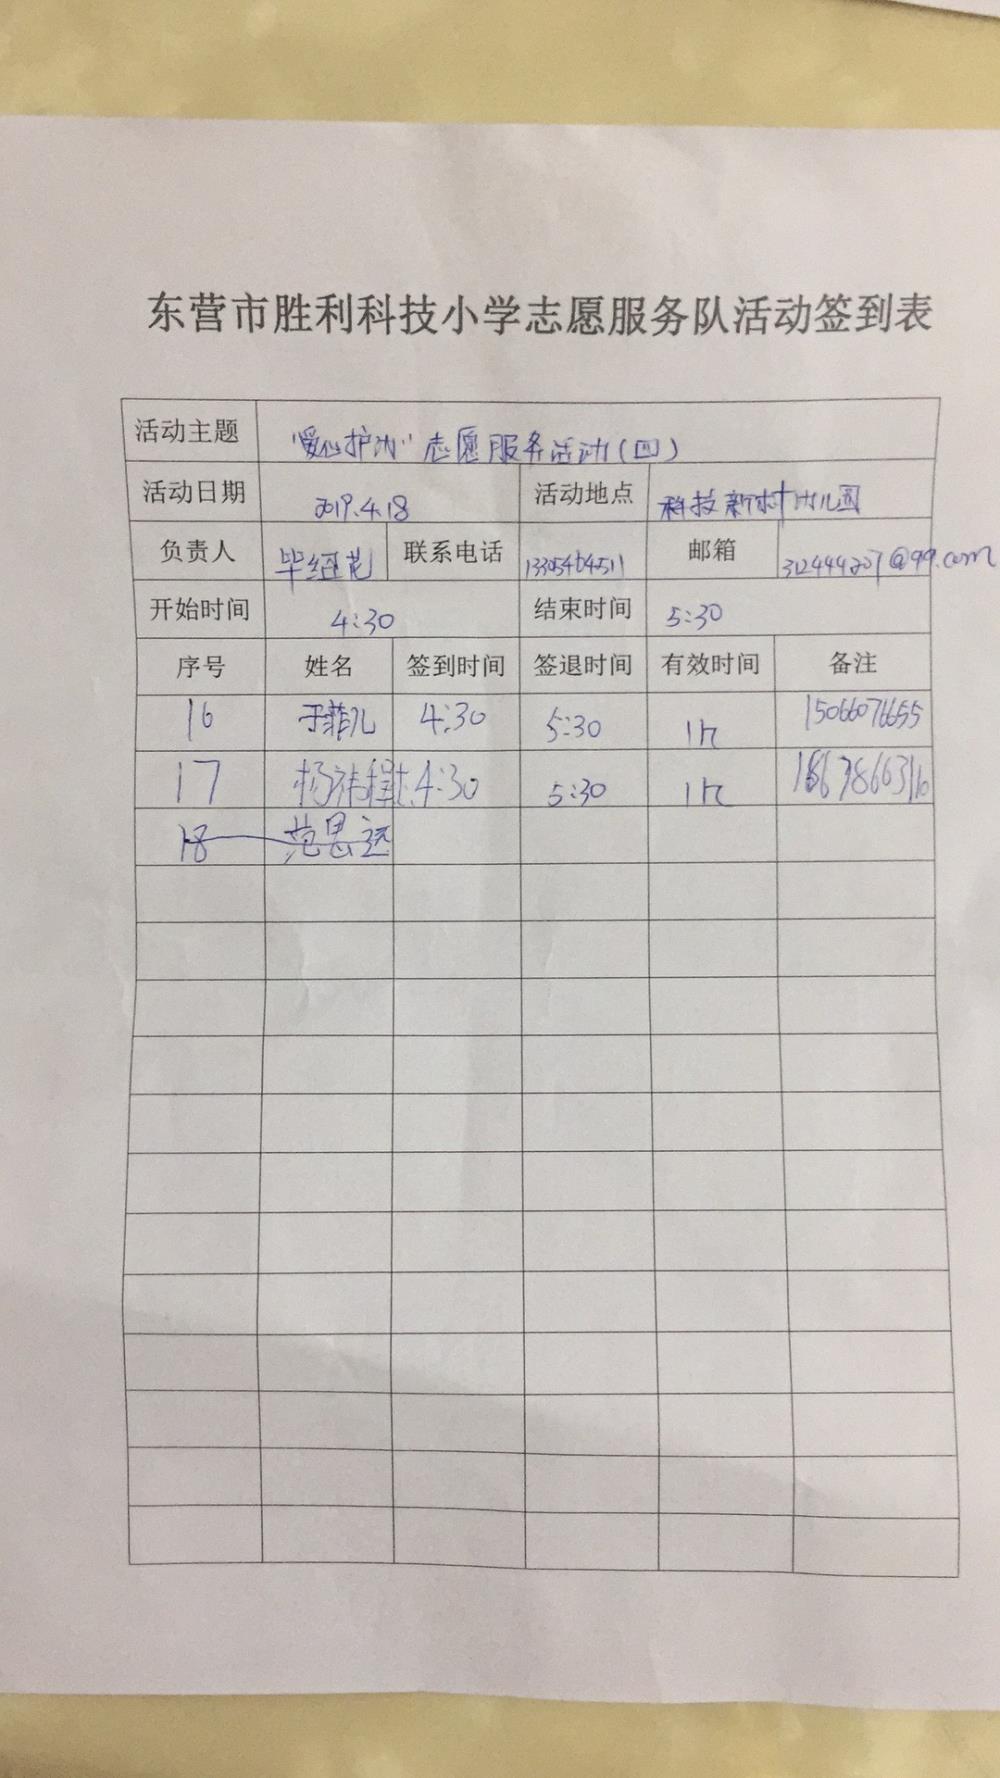 东营市胜利科技小学志愿服务队活动签到表
活动主题 "爱心护幼"志愿服务活动(四)
活动日期 2019.4.18 活动地点 科技新村幼儿园
负责人 毕纽花 联系电话 13305464511 邮箱 312444207@qq.com
开始时间 4:30 结束时间 5:30
序号 姓名 签到时间 签退时间 有效时间 备注
16 于菲儿 4:30 5:30 1h 15066076655
17 杨 4:30 5:30 1h
18 范思远